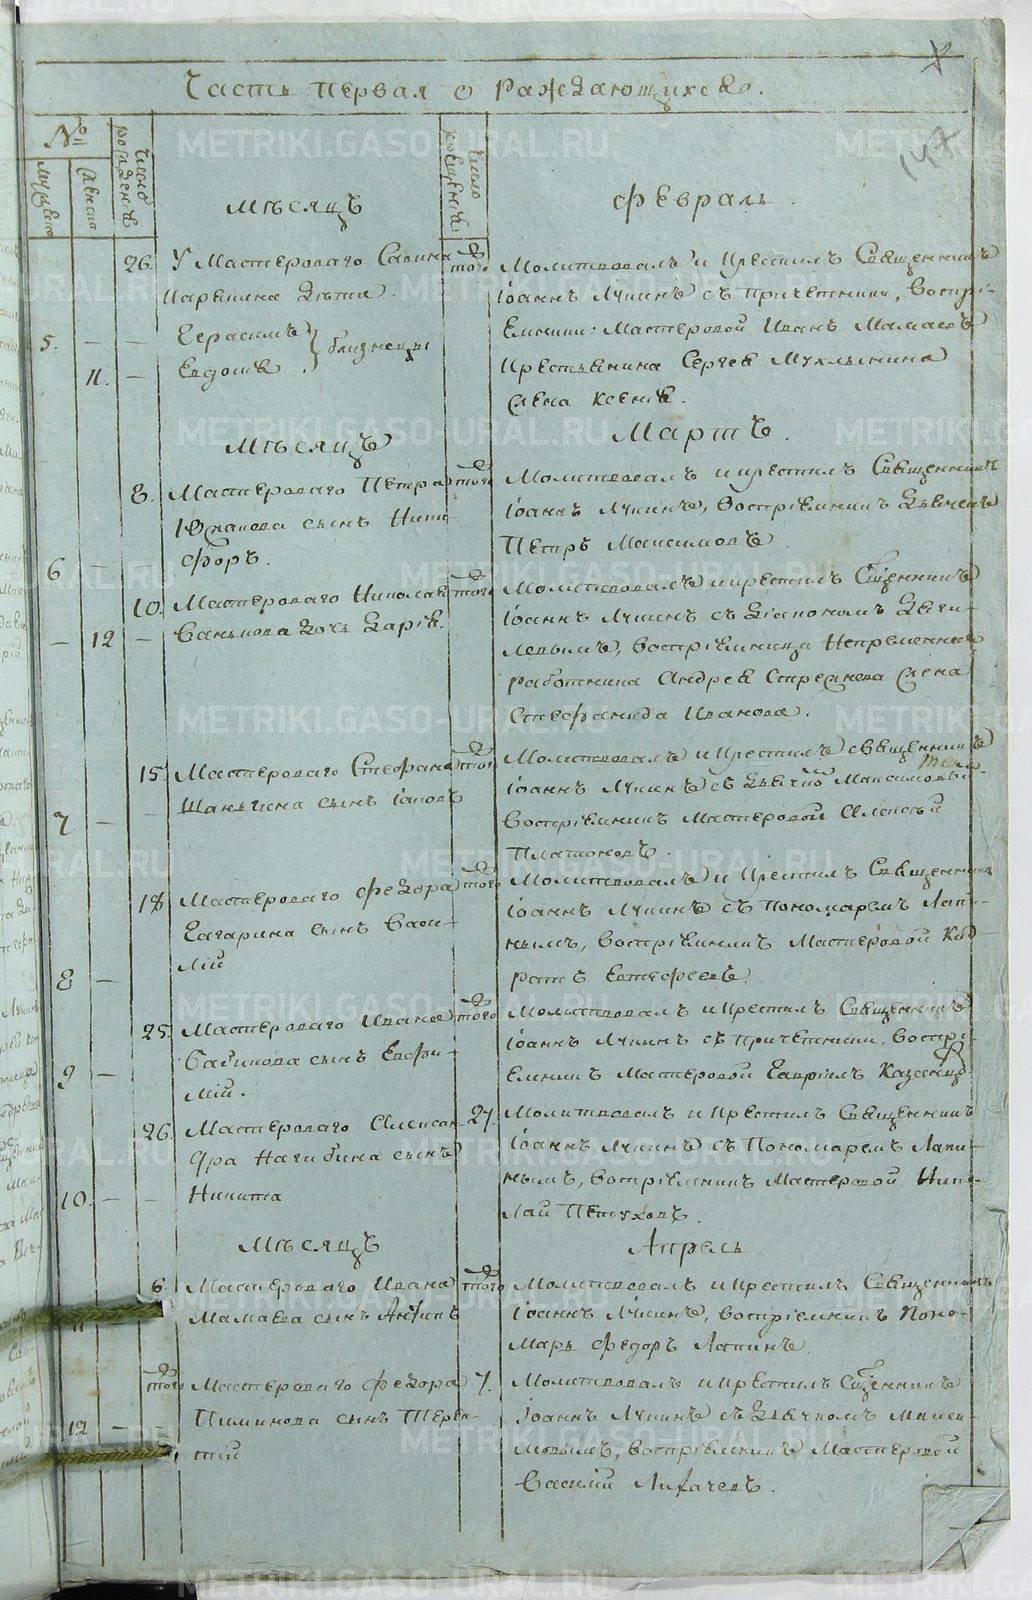 Часть первая о раждающихся.
147
№
Мужеска
Женска
Число рожденiя
Число крещенiя
Мѣсяцъ
Февраль
26. У Мастероваго Савина
того
Молитвовалъ и крестилъ Священникъ
Iоаннъ Лукинъ съ причетники, воспрi-
емники: Мастеровой Иванъ Мамаевъ
Крестьянина Сергея Мухлынина
жена Ксенiя.
дѣти
5. Герасимъ
11. Евдокiя
близнецы
Мѣсяцъ
Мартъ.
8. Мастероваго Петра
сынъ Ники-
форъ.
6
того
Молитвовалъ и крестилъ Священникъ
Iоаннъ Лукинъ, воспрiемникъ Дьячекъ
Петръ Максимовъ
10. Мастероваго Николая
дочь Дарiя.
12
того
Молитвовалъ и крестилъ Священникъ
Iоаннъ Лукинъ съ Дiакономъ
воспрiемница Непременнаго
работника Андрея жена
Стефанида Иванова.
15. Мастероваго Стефана
Шаньгина сынъ Iаковъ
7
того
Молитвовалъ и крестилъ священникъ
Iоаннъ Лукинъ съ Дьячко Максимовымъ
воспрiемникъ Мастеровой Алексѣй
Платоновъ.
18. Мастероваго Федора
Гагарина сынъ Васи-
лiй
8
того
Молитвовалъ и крестилъ Священникъ
Iоаннъ Лукинъ съ Пономаремъ Лапи-
нымъ, воспрiемникъ Мастеровой Код-
ратъ Евсефеевъ.
25. Мастероваго Ивана
Бабикова сынъ Евфи-
мiй.
9
того
Молитвовалъ и крестилъ Священникъ
Iоаннъ Лукинъ съ причетники, воспрi-
емникъ Мастеровой Гаврiилъ
26. Мастероваго Алексан-
дра Нагибина сынъ
Никита
10.
27.
Молитвовалъ и крестилъ Священникъ
Iоаннъ Лукинъ съ Пономаремъ Лапи-
нымъ, воспрiемникъ Мастеровой Нико-
лай Петуховъ.
Мѣсяцъ
Апрель
6. Мастероваго Ивана
Мамаева сынъ Антипъ
11
того
Молитвовалъ и крестилъ Священникъ
Iоаннъ Лукинъ, воспрiемникъ Поно-
марь Федоръ Лапинъ.
того Мастероваго Федора
Пиминова сынъ Терен-
тiй
12
7.
Молитвовалъ и крестилъ Священникъ
Iоаннъ Лукинъ съ Дьячкомъ Макси-
мовымъ, воспрiемникъ Мастеровой
Василiй Лихачевъ.
METRIKI.GASO-URAL.RU